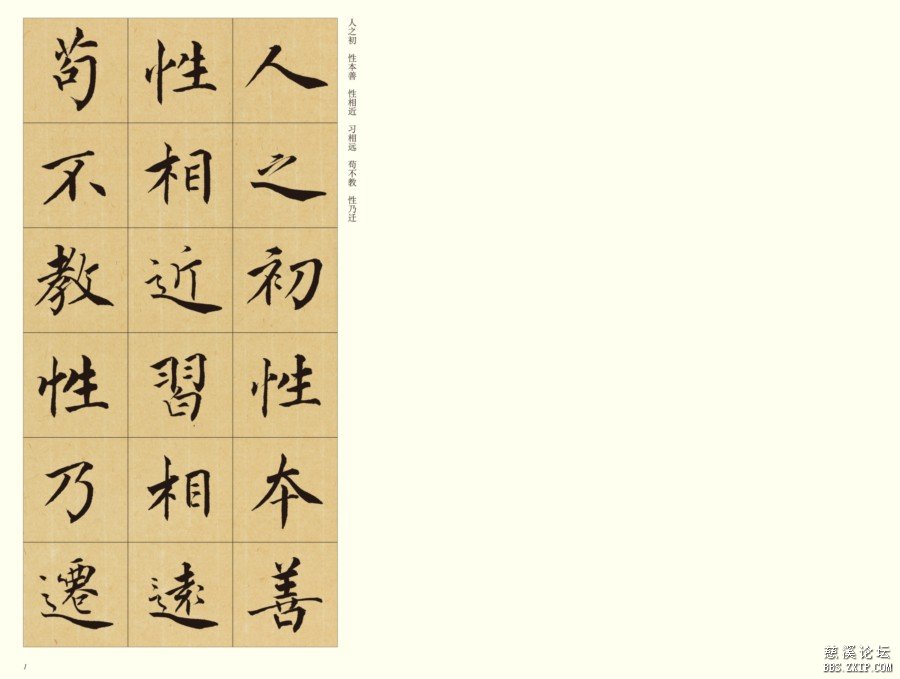 人之初性本善
性相近習相遠
苟不教性乃遷
人之初 性本善 性相近 习相远 苟不教 性乃迁
1
慈溪论坛
BBS.ZXIP.COM